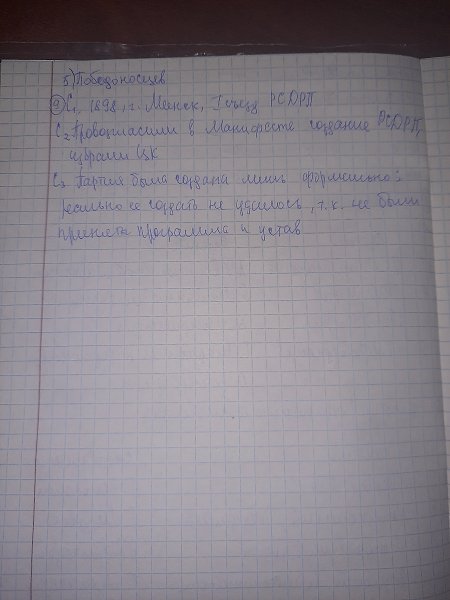 5) Победоносцев
9) С1. 1898, г. Минск, I съезд РСДРП
С2 Провозгласили в Манифесте создание РСДРП,
избрали ЦК
С3 Партия была создана лишь формально:
реально её создать не удалось, т.к. не были
приняты программа и устав